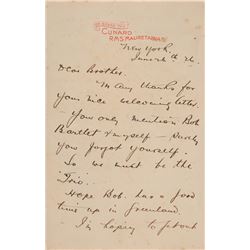 CUNARD
R.M.S. MAURETANIA
New York
June 26th 26.
Dear Brother.
Many thanks for
your nice welcoming letter.
- You only mention Bob
Bartlet & myself - Surely
you forgot yourself.
So we must be the
Trio.
Hope Bob has a good
time up in Greenland
I'm hoping to get out